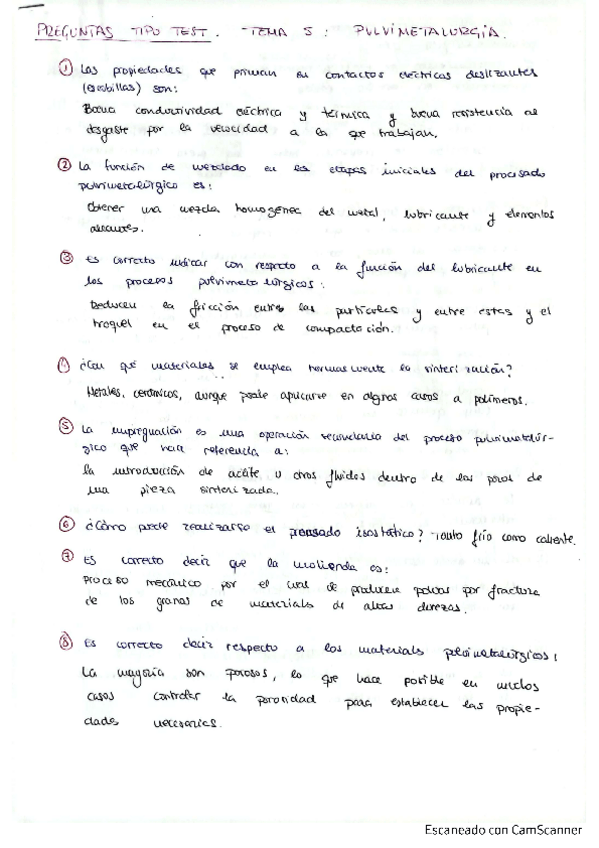 PREGUNTAS TIPO TEST. TEMA 5: PULVIMETALURGIA.
① Las propiedades que priman en contactos eléctricos deslizantes
(escobillas) son:
Buena conductividad eléctrica y térmica y buena resistencia al
desgaste por la velocidad a la que trabajan.
② La función de mezclado en las etapas iniciales del procesado
pulvimetalúrgico es:
Obtener una mezcla homogénea del metal, lubricante y elementos
aleantes.
③ Es correcto indicar con respecto a la función del lubricante en
los procesos pulvimetalúrgicos:
Reducen la fricción entre las partículas y entre estas y el
troquel en el proceso de compactación.
④ ¿Con qué materiales se emplea normalmente la sinterización?
Metales, cerámicos, aunque puede aplicarse en algunos casos a polímeros.
⑤ La impregnación es una operación secundaria del proceso pulvimetalúr-
gico que hace referencia a:
la introducción de aceite u otros fluidos dentro de los poros de
una pieza sinterizada.
⑥ ¿Cómo puede realizarse el prensado isostático? Tanto frío como caliente.
⑦ Es correcto decir que la molienda es:
Proceso mecánico por el cual se producen polvos por fractura
de los granos de materiales de altas durezas.
⑧ Es correcto decir respecto a los materials pulvimetalúrgicos:
La mayoría son porosos, lo que hace posible en muchos
casos controlar la porosidad para establecer las propie-
dades necesarias.
Escaneado con CamScanner